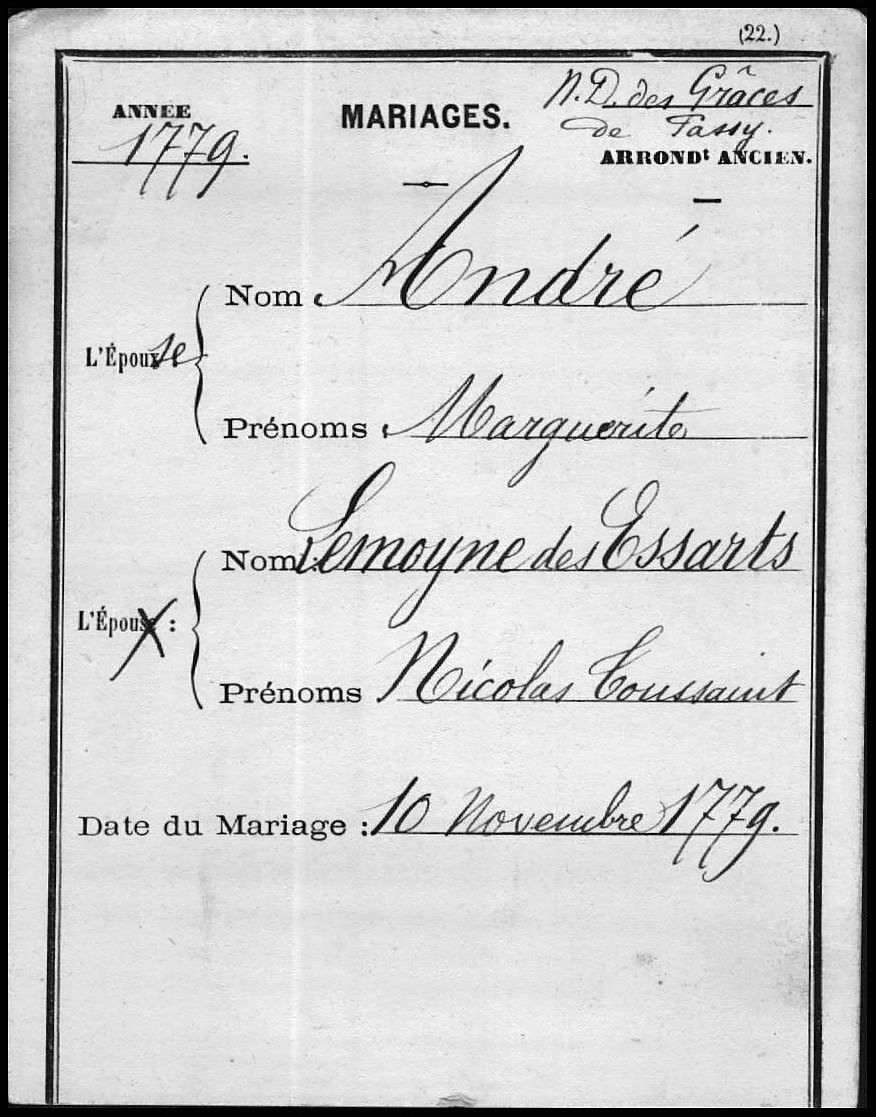 (22.)
ANNÉE
1779.
MARIAGES.
N. D. des Grâces
de Passy.
ARRONDt ANCIEN.
Nom : André
L'Épouse
Prénoms : Marguerite
Nom : Lemoyne des Essarts
L'Époux :
Prénoms Nicolas Toussaint
Date du Mariage : 10 Novembre 1779.